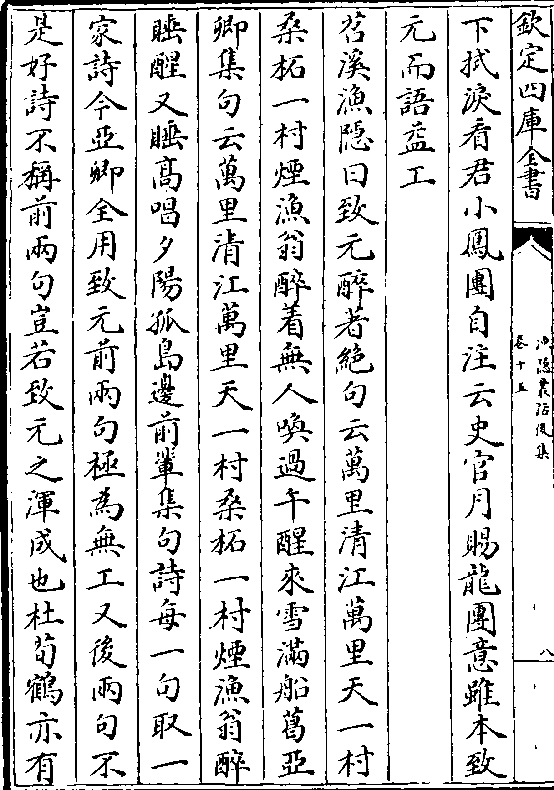 欽定四庫全書
漁隱叢話後集
卷十五
八
下拭淚看君小鳳團自注云史官月賜龍團意雖本致
元而語益工
苕溪漁隱曰致元醉著絶句云萬里清江萬里天一村
桑柘一村煙漁翁醉着無人喚過午醒來雪滿船葛亞
卿集句云萬里清江萬里天一村桑柘一村煙漁翁醉
睡醒又睡高唱夕陽孤島邊前輩集句詩每一句取一
家詩今亞卿全用致元前兩句極為無工又後兩句不
是好詩不稱前兩句豈若致元之渾成也杜荀鶴亦有